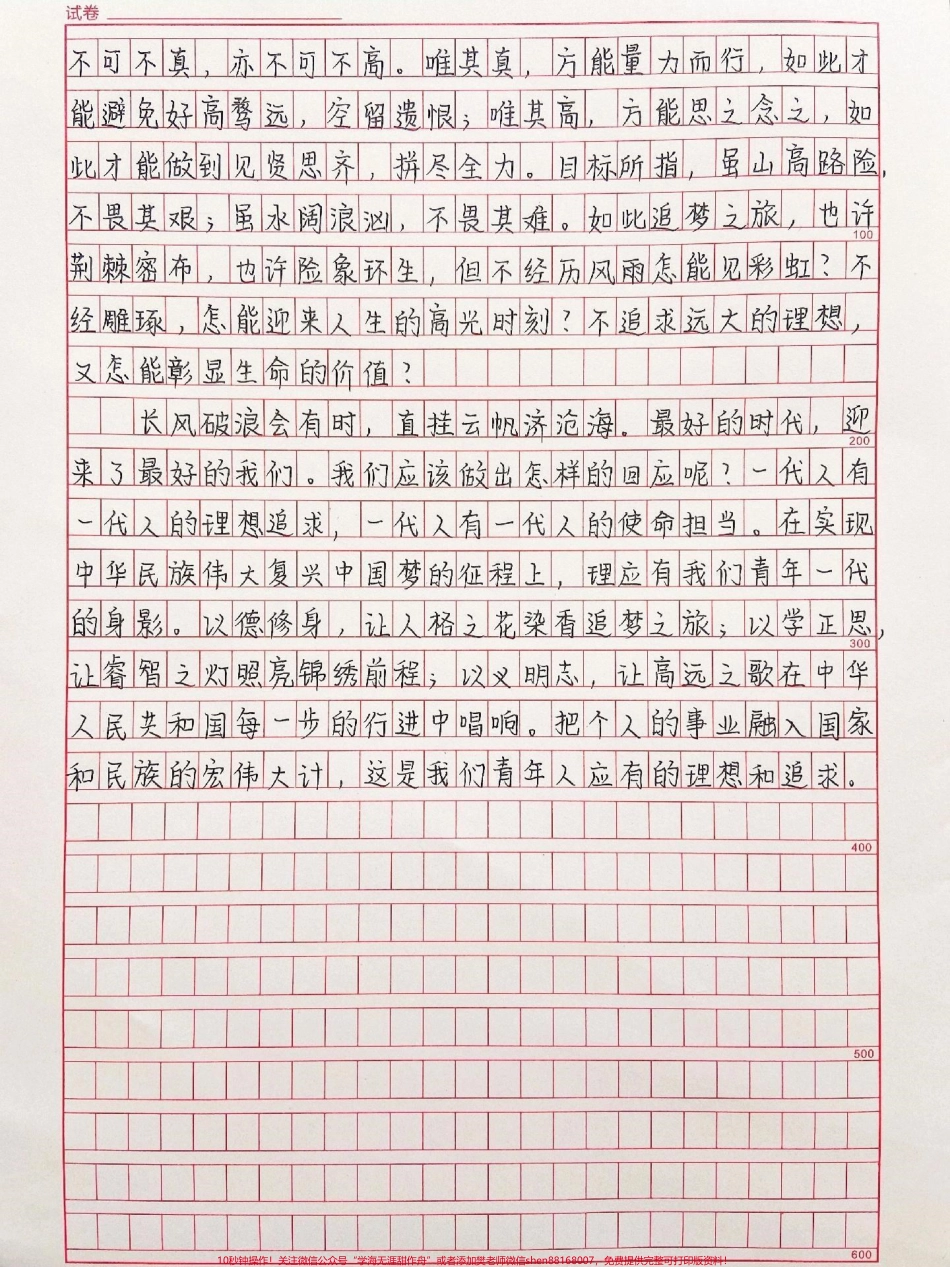 试卷
不可不真，亦不可不高。唯其真，方能量力而行，如此才
能避免好高骛远，空留遗恨；唯其高，方能思之念之，如
此才能做到见贤思齐，拼尽全力。目标所指，虽山高路险，
不畏其艰；虽水阔浪汹，不畏其难。如此追梦之旅，也许
100
荆棘密布，也许险象环生，但不经历风雨怎能见彩虹？不
经雕琢，怎能迎来人生的高光时刻？不追求远大的理想，
又怎能彰显生命的价值？
长风破浪会有时，直挂云帆济沧海。最好的时代，迎
200
来了最好的我们。我们应该做出怎样的回应呢？一代人有
一代人的理想追求，一代人有一代人的使命担当。在实现
中华民族伟大复兴中国梦的征程上，理应有我们青年一代
的身影。以德修身，让人格之花染香追梦之旅；以学正思，
300
让睿智之灯照亮锦绣前程；以义明志，让高远之歌在中华
人民共和国每一步的行进中唱响。把个人的事业融入国家
和民族的宏伟大计，这是我们青年人应有的理想和追求。
400
500
600
10秒钟操作！关注微信公众号“学海无涯甜作舟”或者添加樊老师微信shen88168007，免费提供完整可打印版资料！